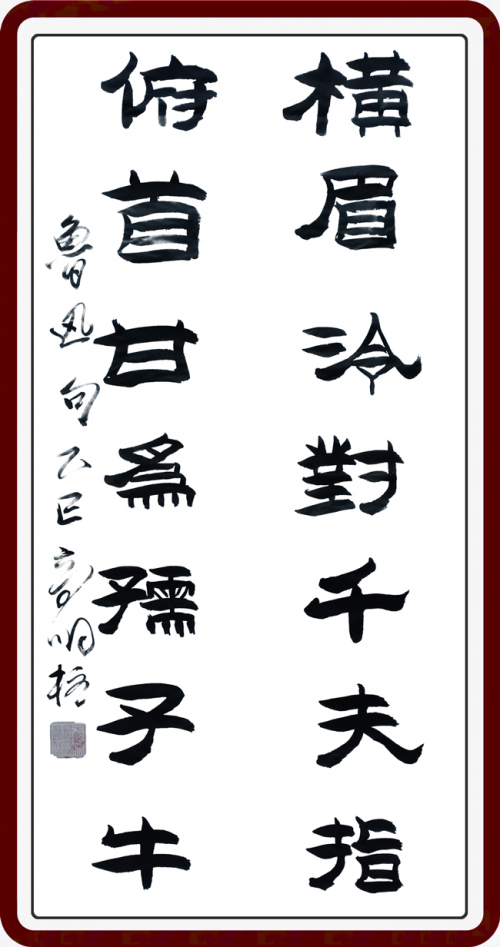 横眉冷對千夫指
俯首甘爲孺子牛
魯迅句乙巳